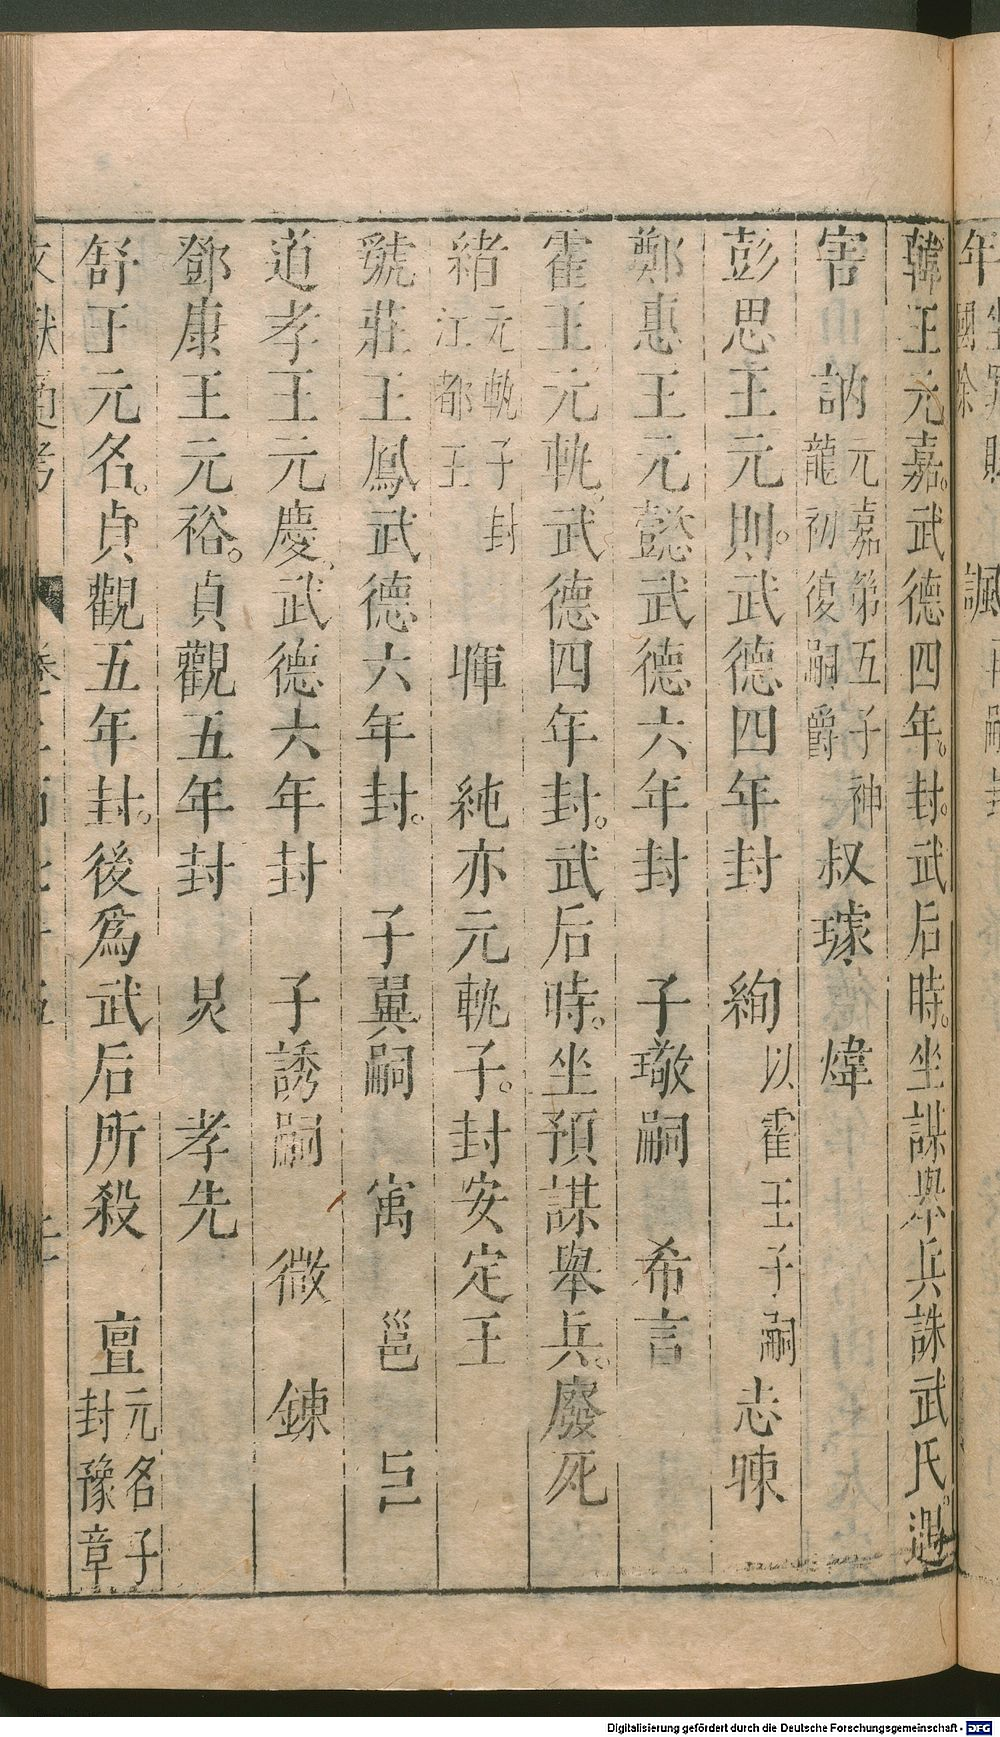 韓王元嘉。武德四年。封。武后時。坐謀舉兵誅武氏。遇
害 訥 元嘉第五子神龍初復嗣爵 叔璩 煒
彭思王元則。武德四年封 絢 以霍王子嗣 志暕
鄭惠王元懿武德六年封 子璥嗣 希言
霍王元軌。武德四年封。武后時。坐預謀舉兵。廢死
緒 元軌子封江都王 暉 純亦元軌子。封安定王
虢莊王鳳武德六年封。 子翼嗣 寓 邕 巨
道孝王元慶。武德六年封 子誘嗣 微 鍊
鄧康王元裕。貞觀五年封 炅 孝先
舒王元名。貞觀五年封。後爲武后所殺 亶 元名子封豫章
Digitalisierung gefördert durch die Deutsche Forschungsgemeinschaft - DFG